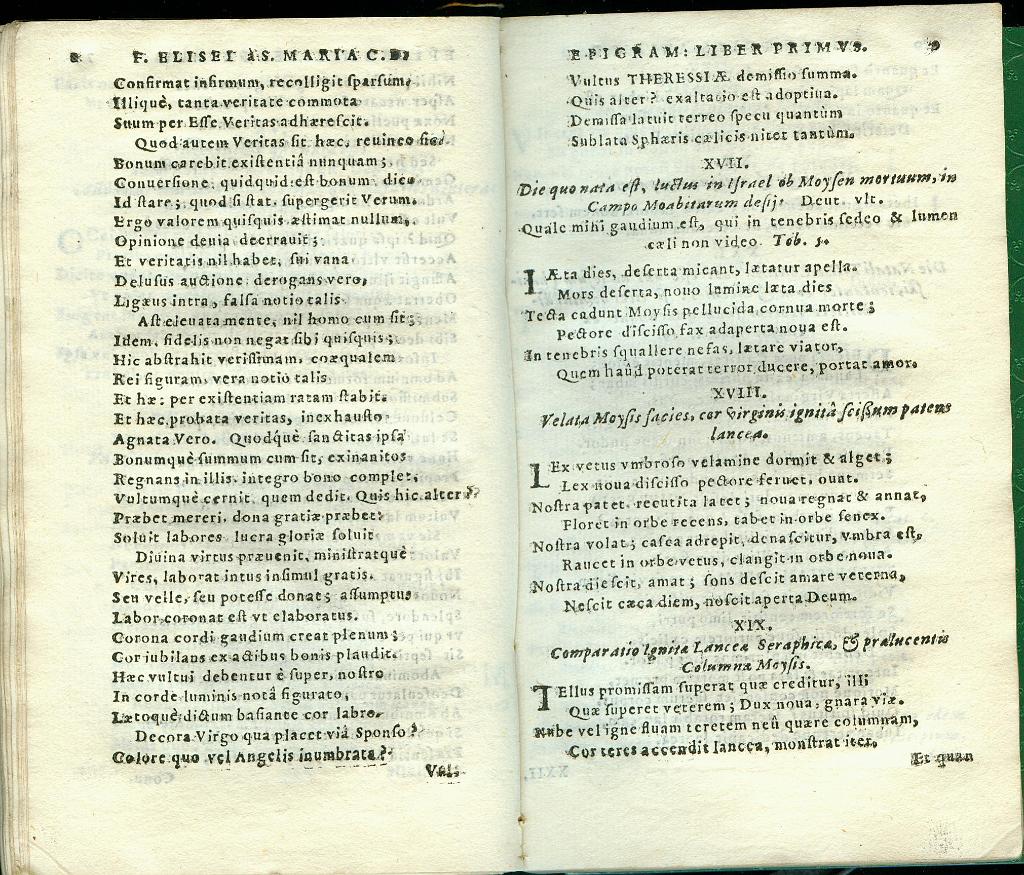 8 F. ELISEI à S. MARIA C.D.
Confirmat infirmum, recolligit sparsum,
Illiquè, tanta veritate commota
Suum per Esse Veritas adhærescit.
Quod autem Veritas sit hæc, reuinco sic:
Bonum carebit existentiâ nunquam;
Conuersione, quidquid est bonum, dico
Id stare; quod si stat, supergerit Verum.
Ergo valorem quisquis æstimat nullum,
Opinione deuia deerrauit;
Et veritatis nil habet, sui vana
Delusus auctione, derogans vero,
Ligæus intra, falsa notio talis.
Ast eleuata mente, nil homo cum sit;
Idem, fidelis non negat sibi quisquis;
Hic abstrahit verissimam, coæqualem
Rei figuram, vera notio talis
Et hæ: per existentiam ratam stabit.
Et hæc probata veritas, inexhausto
Agnata Vero. Quodque sanctitas ipsa
Bonumquè summum cum sit, exinanitos
Regnans in illis, integro bono complet,
Vultumquè cernit, quem dedit. Quis hic alter?
Præbet mereri, dona gratiæ præbet:
Soluit labores, lucra gloriæ soluit
Diuina virtus præuenit, ministratquè
Vires, laborat intus insimul gratis.
Seu velle, seu potesse donat; assumptus
Labor coronat est vt elaboratus.
Corona cordi gaudium creat plenum;
Cor iubilans ex actibus bonis plaudit.
Hæc vultui debentur è super, nostro
In corde luminis notâ figurato,
Lætoquè dictum basiante cor labro.
Decora Virgo qua placet viâ Sponso?
Colore quo vel Angelis inumbrata?
Vul-
EPIGRAM: LIBER PRIMVS. 9
Vultus THERESSIÆ demissio summa.
Quis alter? exaltatio est adoptiua.
Demissa latuit terreo specu quantùm
Sublata Sphæris cælicis nitet tantùm.
XVII.
Die quo nata est, luctus in Israel ob Moysen mortuum, in
Campo Moabitarum desijt Deut. vlt.
Quale mihi gaudium est, qui in tenebris sedeo & lumen
cæli non video. Tob. 5.
LÆta dies, deserta micant, lætatur apella.
Mors deserta, nouo lumine læta dies
Tecta cadunt Moysis pellucida cornua morte;
Pectore discisso fax adaperta noua est.
In tenebris squallere nefas, lætare viator,
Quem haûd poterat terror ducere, portat amor.
XVIII.
Velata Moysis facies, cor Virginis ignitâ scissum patens
lancea.
LEx vetus vmbroso velamine dormit & alget;
Lex noua discisso pectore feruet, ouat.
Nostra patet, recutita latet; noua regnat & annat,
Floret in orbe recens, tabet in orbe senex.
Nostra volat; casca adrepit, denascitur, vmbra est,
Raucet in orbe vetus, clangit in orbe noua.
Nostra diescit, amat; sons descit amare veterna,
Nescit cæca diem, noscit aperta Deum.
XIX.
Comparatio Ignitæ Lanceæ Seraphicæ, & prælucentis
Columnæ Moysis.
TEllus promissam superat quæ creditur, illi
Quæ superet veterem; Dux noua, gnara viæ.
Nube vel igne fluam teretem neû quære columnam,
Cor teres accendit lancea, monstrat iter.
Et quan